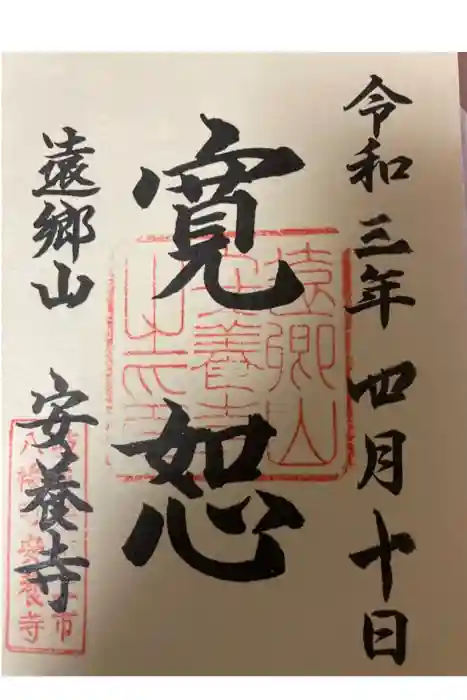 令和三年四月十日
寛恕
遠郷山 安養寺
遠郷山
安養寺
八幡 安養寺